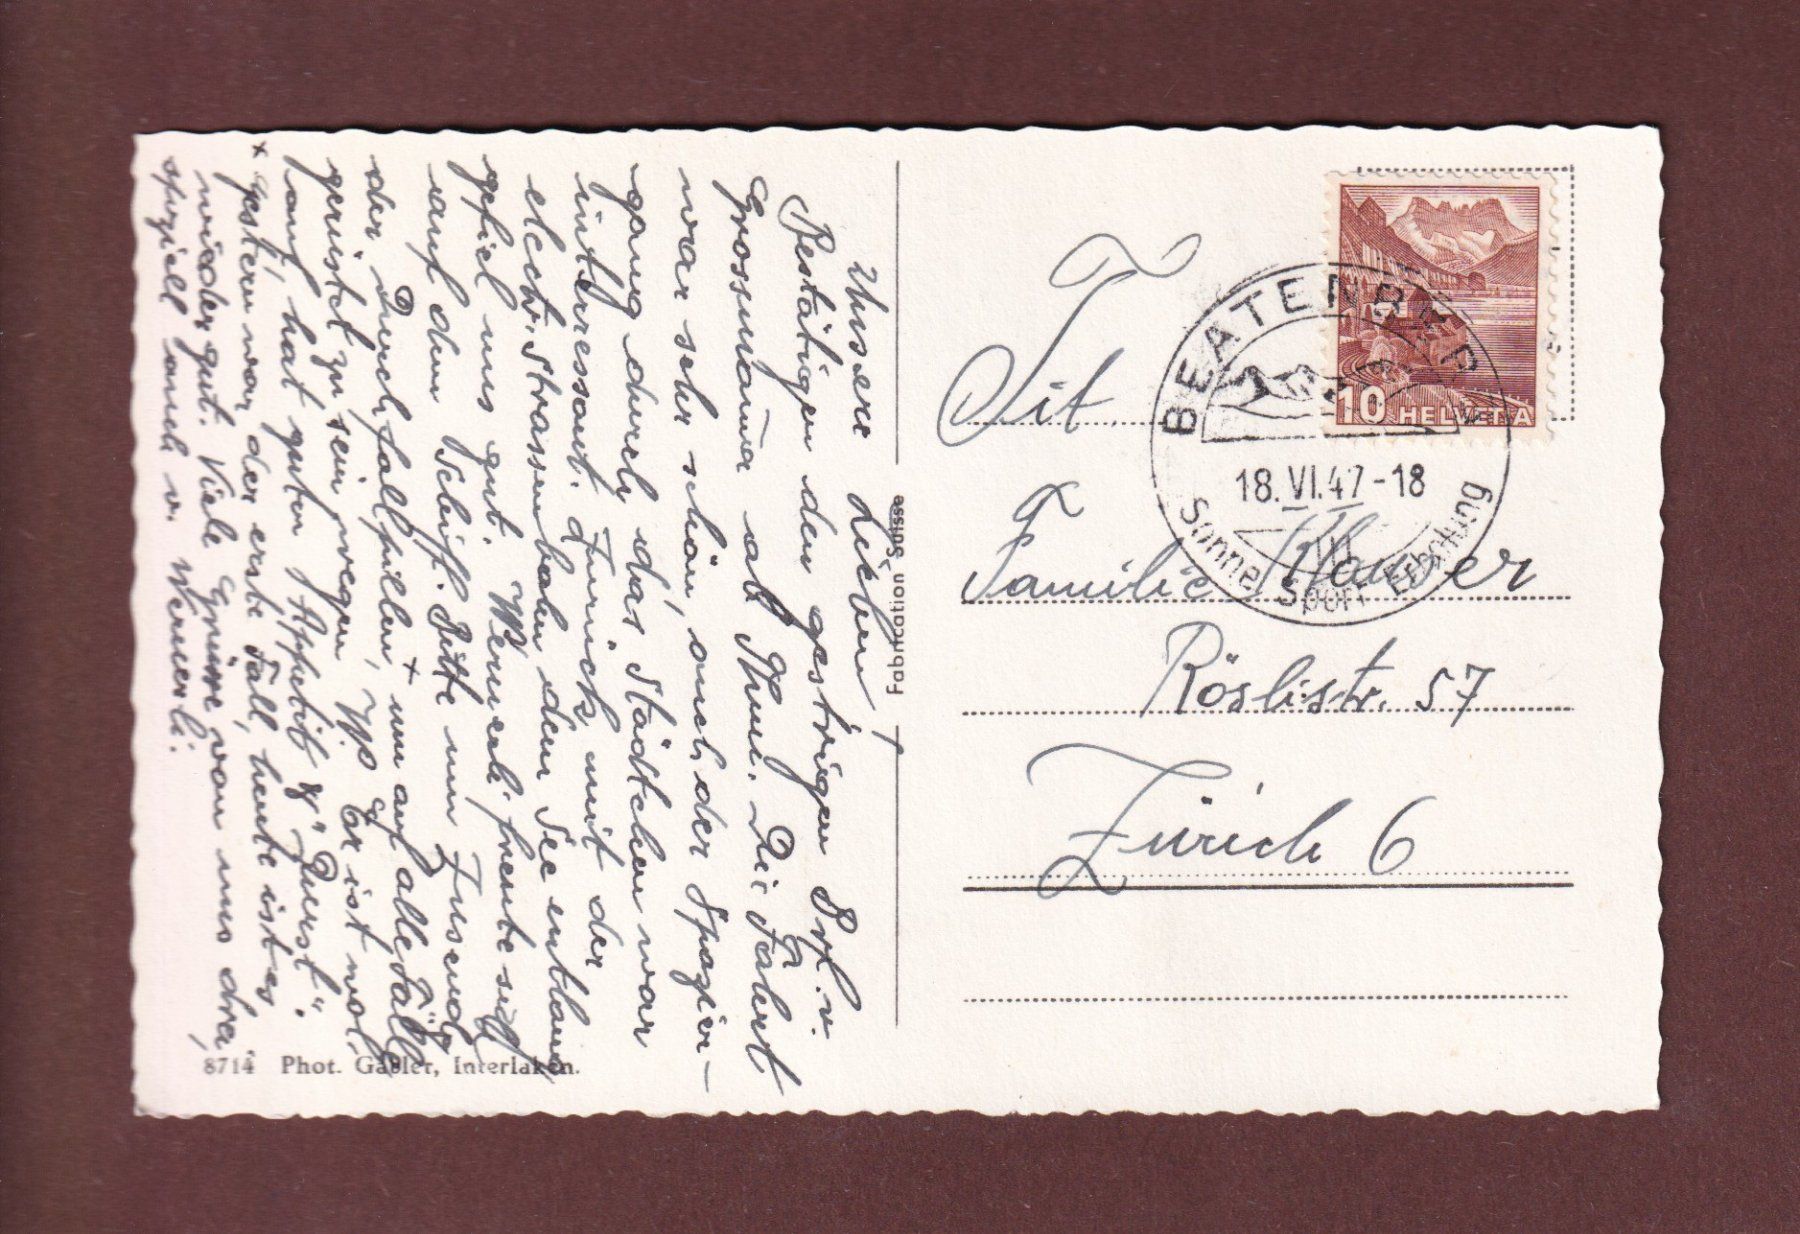 Unsere Lieben!
Bestätigen den gestrigen Bf. v.
Grossmama ab Thun. Die Fahrt
war sehr schön, auch der Spazier-
gang durch das Städtchen war
interessant. Zurück mit der
electr. Strassenbahn dem See entlang
gefiel uns gut. Werner
auf dem Schiff. Bitte um Zusend.
der Durchfallpillen, + um auf alle Fälle
gerüstet zu sein wegen W. Er ist wohl
auf, hat guten Appetit & "Durst".
+ gestern war der erste Fall, heute ist es
wieder gut. Viele Grüsse von uns drei,
speziell auch v. Wernerli.
8714 Phot. Gaßler, Interlaken.
Fabrication Suisse
BEATENBERG
18.VI.47-18
Sonne Sport Erholung
10 HELVETIA
Tit.
Familie
Röslistr. 57
Zürich 6